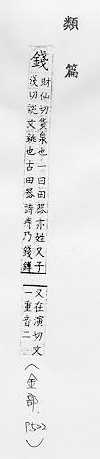 類篇
錢
財仙切貨泉也一曰田器亦姓又子
淺切說文銚也古田器詩庤乃錢鎛
又在演切文
一重音二
(金部, P522)